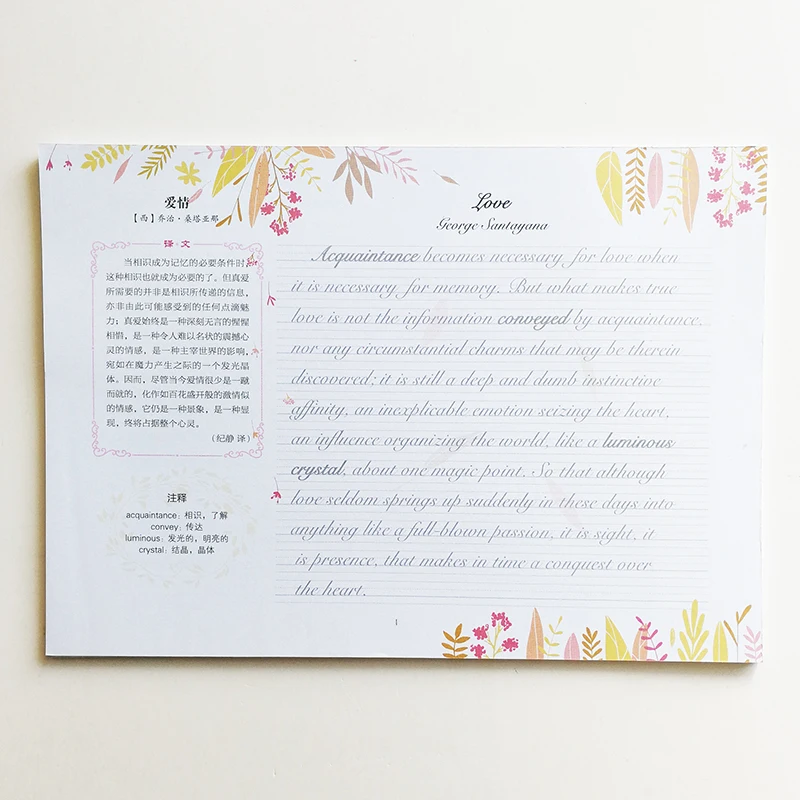 爱情
【西】乔治·桑塔亚那
译·文
当相识成为记忆的必要条件时，
这种相识也就成为必要的了。但真爱
所需要的并非是相识所传递的信息，
亦非由此可能感受到的任何点滴魅
力；真爱始终是一种深刻无言的惺惺
相惜，是一种令人难以名状的震撼心
灵的情感，是一种主宰世界的影响，
宛如在魔力产生之际的一个发光晶
体。因而，尽管当今爱情很少是一蹴
而就的，化作如百花盛开般的激情似
的情感，它仍是一种景象，是一种显
现，终将占据整个心灵。
（纪静 译）
注释
acquaintance: 相识，了解
convey: 传达
luminous: 发光的，明亮的
crystal: 结晶，晶体
Love
George Santayana
Acquaintance becomes necessary for love when
it is necessary for memory. But what makes true
love is not the information conveyed by acquaintance,
nor any circumstantial charms that may be therein
discovered; it is still a deep and dumb instinctive
affinity, an inexplicable emotion seizing the heart,
an influence organizing the world, like a luminous
crystal, about one magic point. So that although
love seldom springs up suddenly in these days into
anything like a full-blown passion, it is sight, it
is presence, that makes in time a conquest over
the heart.
1